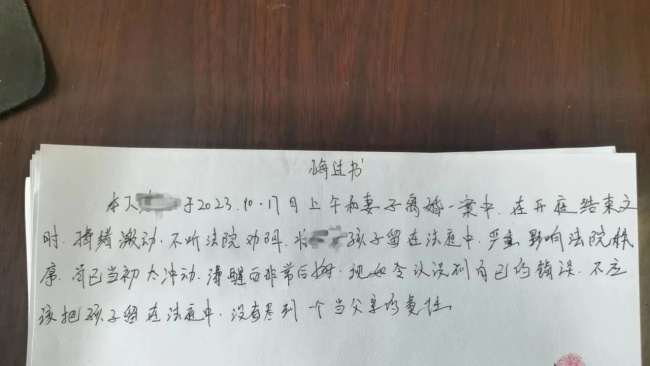 悔过书
本人于2023.10.17日上午和妻子离婚一案中.在开庭结束之
时.情绪激动.不听法院劝阻.将孩子留在法庭中.严重影响法院秩
序.自己当初太冲动.清醒后非常后悔.现如今认识到自己的错误.不应
该把孩子留在法庭中.没有尽到一个当父亲的责任.